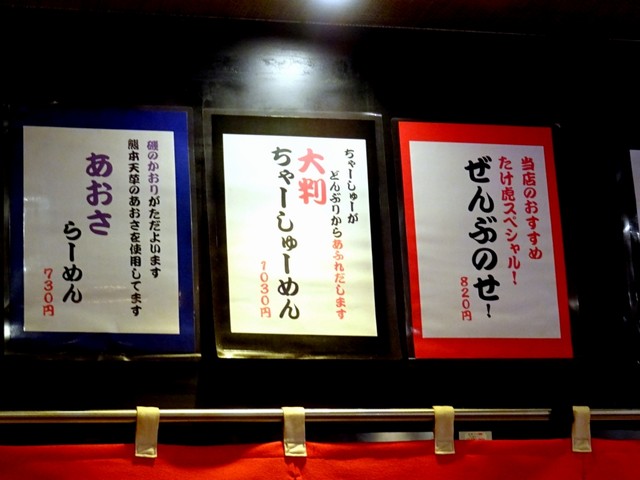 当店のおすすめ
たけ虎スペシャル！
ぜんぶのせ！
820円
ちゃーしゅーが
どんぶりからあふれだします
大判
ちゃーしゅーめん
1030円
磯のかおりがただよいます
熊本天草のあおさを使用してます
あおさ
らーめん
730円